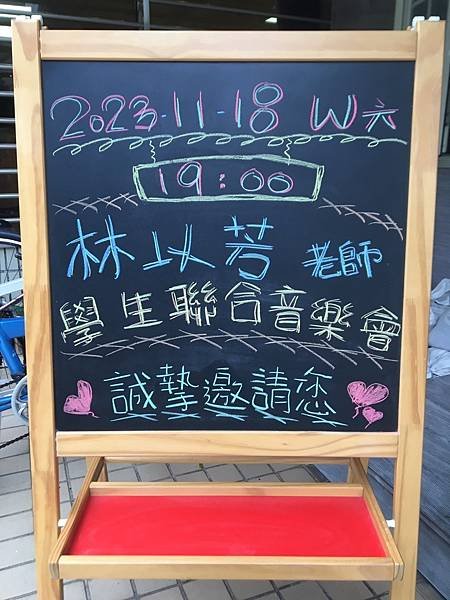 2023.11.18 W六
19:00
林以芳 老師
學生聯合音樂會
誠摯邀請您